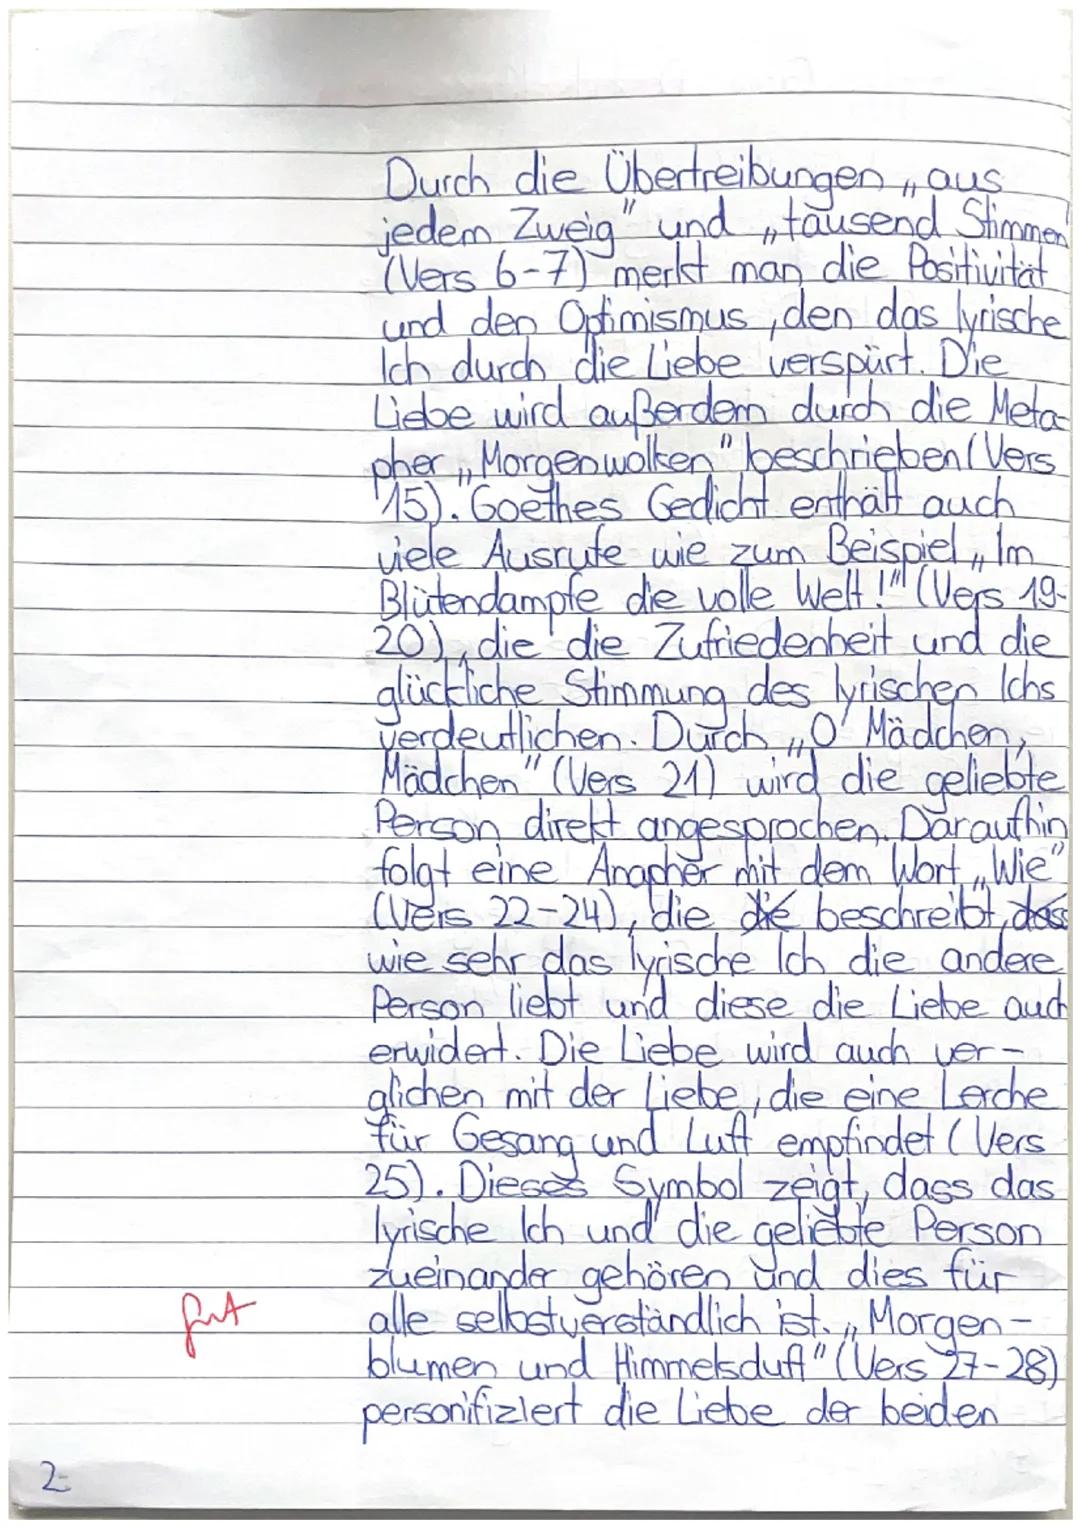 Durch die Übertreibungen „aus
jedem Zweig" und „tausend Stimmen"
(Vers 6-7) merkt man die Positivität
und den Optimismus, den das lyrische
Ich durch die Liebe verspürt. Die
Liebe wird außerdem durch die Meta-
pher „Morgenwolken" beschrieben (Vers
15). Goethes Gedicht enthält auch
viele Ausrufe wie zum Beispiel „Im
Blütendampfe die volle Welt!" (Vers 19-
20), die die Zufriedenheit und die
glückliche Stimmung des lyrischen Ichs
verdeutlichen. Durch „O Mädchen,
Mädchen" (Vers 21) wird die geliebte
Person direkt angesprochen. Daraufhin
folgt eine Anapher mit dem Wort „Wie"
(Vers 22-24), die die beschreibt, dass
wie sehr das lyrische Ich die andere
Person liebt und diese die Liebe auch
erwidert. Die Liebe wird auch ver-
glichen mit der Liebe, die eine Lerche
für Gesang und Luft empfindet (Vers
25). Dieses Symbol zeigt, dass das
lyrische Ich und die geliebte Person
zueinander gehören und dies für
gut
alle selbstverständlich ist. „Morgen-
blumen und Himmelsduft" (Vers 27-28)
personifiziert die Liebe der beiden
2